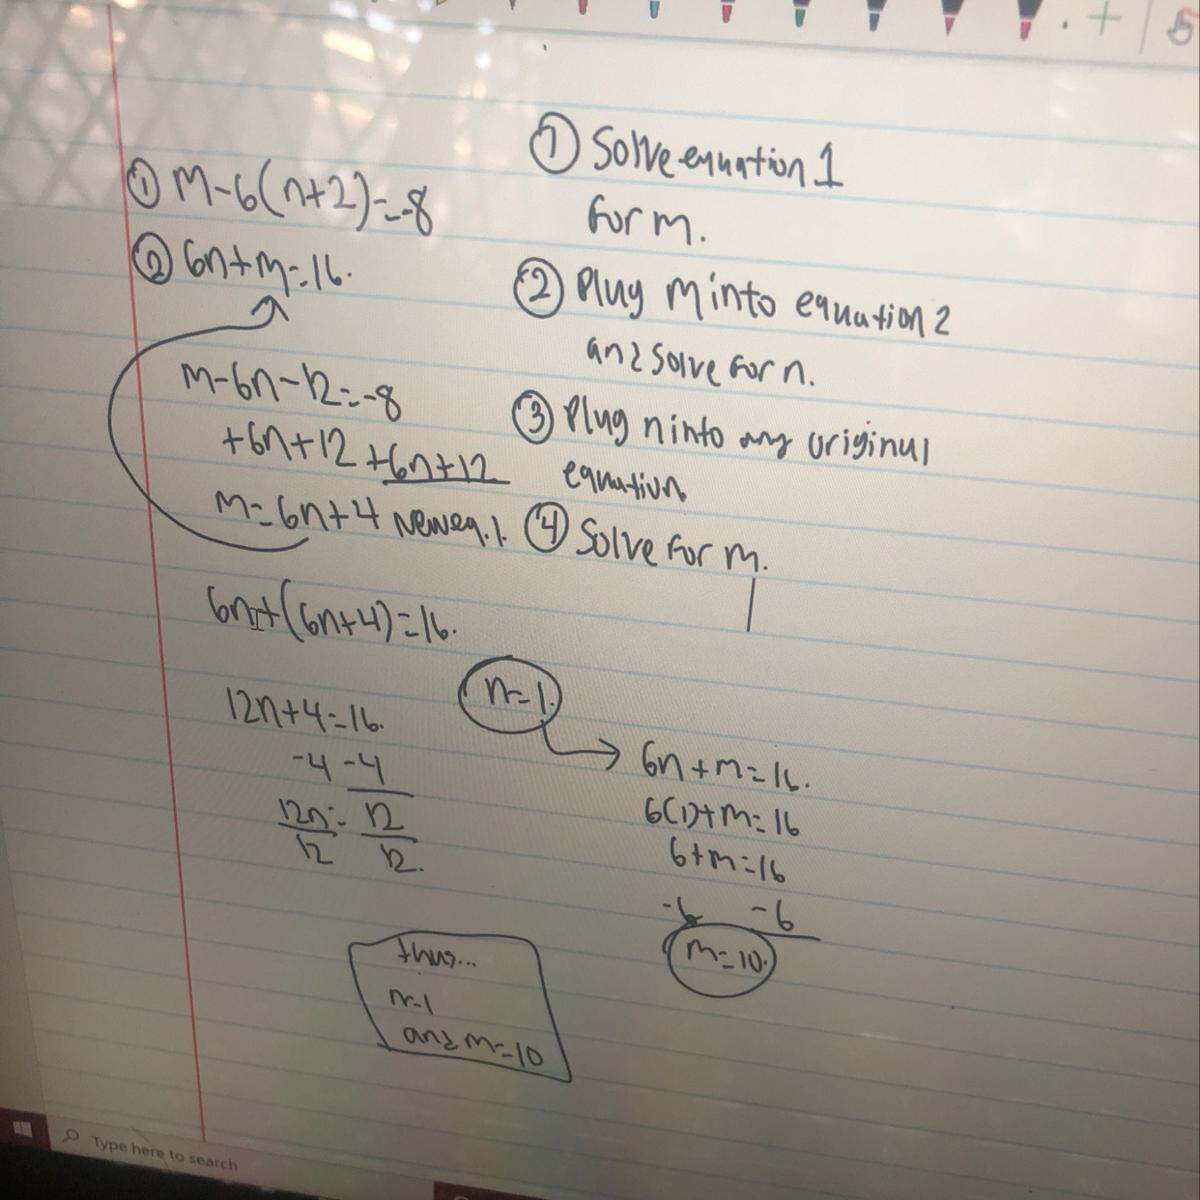 ① m-6(n+2)=-8
② 6n+m=16.
m-6n-12=-8
+6n+12 +6n+12
m=6n+4 New eq.1.
6n+(6n+4)=16.
12n+4=16.
-4 -4
12n = 12
12 12.
n=1.
① Solve equation 1
for m.
② Plug m into equation 2
and solve for n.
③ Plug n into any original
equation
④ Solve for m.
6n+m=16.
6(1)+m=16
6+m=16
-6 -6
m=10.
thus...
n=1
and m=10
Type here to search